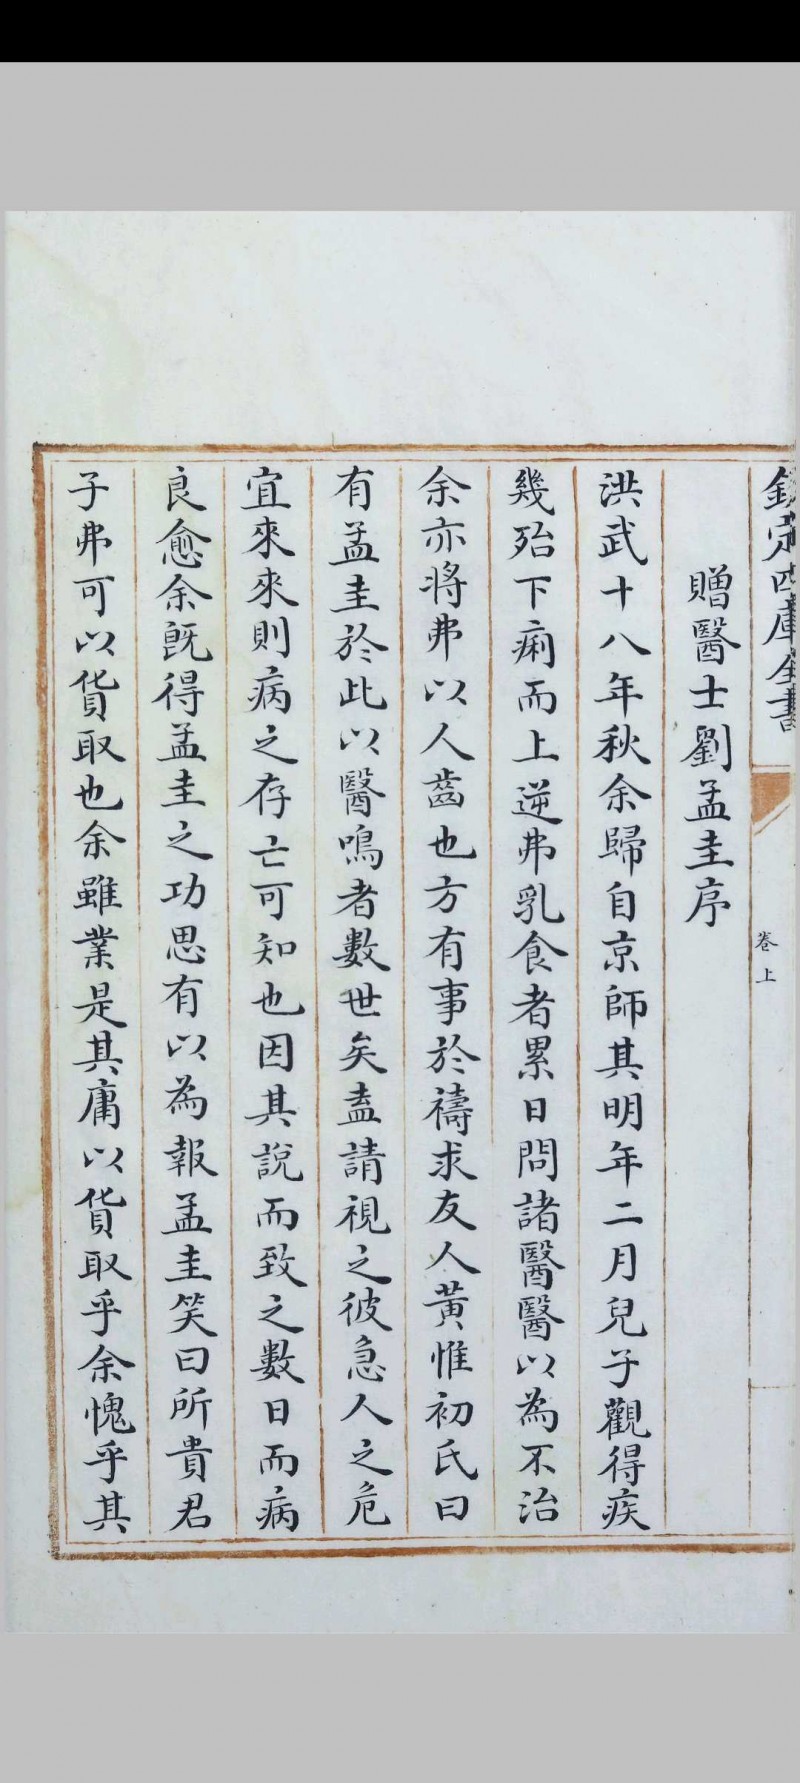 欽定四庫全書
卷上
贈醫士劉孟圭序
洪武十八年秋余歸自京師其明年二月兒子觀得疾
幾殆下痢而上逆弗乳食者累日問諸醫醫以為不治
余亦將弗以人齒也方有事於禱求友人黃惟初氏曰
有孟圭於此以醫鳴者數世矣盍請視之彼急人之危
宜來來則病之存亡可知也因其說而致之數日而病
良愈余既得孟圭之功思有以為報孟圭笑曰所貴君
子弗可以貨取也余雖業是其庸以貨取乎余愧乎其